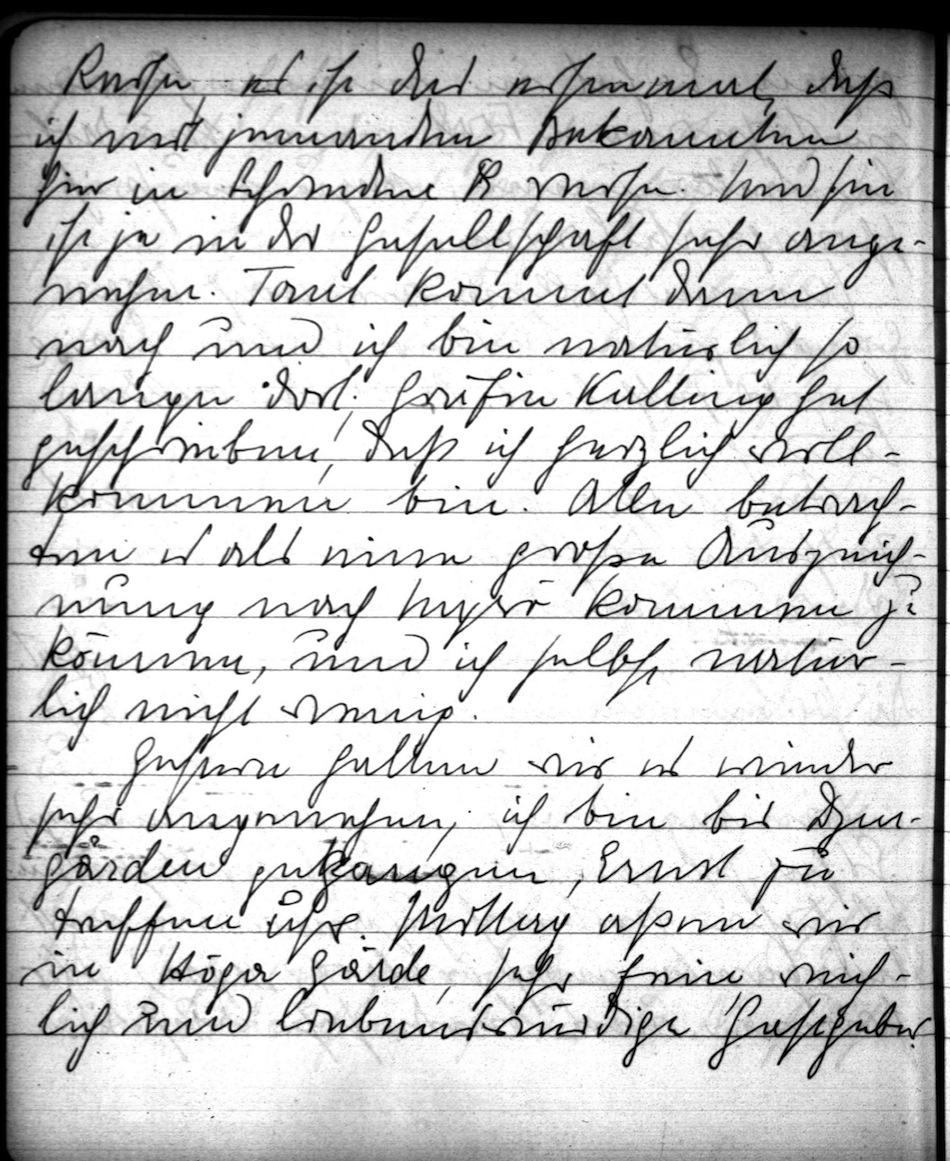 Reise, es ist das erstemal, daß
ich mit jemanden Bekannten
hier in Schweden reise. Und hin
ist ja in der Gesellschaft sehr ange-
nehm. Tant kommt dann
nach und ich bin natürlich so
lange dort. Gräfin Kalling hat
geschrieben, daß ich herzlich will-
kommen bin. Alle betrach-
ten es als eine große Auszeich-
nung nach kommen zu
können, und ich selbst natür-
lich nicht wenig.
Gestern hatten wir es wieder
sehr angenehm, ich bin bis
gården gegangen, Ernst zu
treffen Uhr. Mittag aßen wir
in Höga Gärde, sehr fein reich-
lich und liebenswürdige Gastgeber.